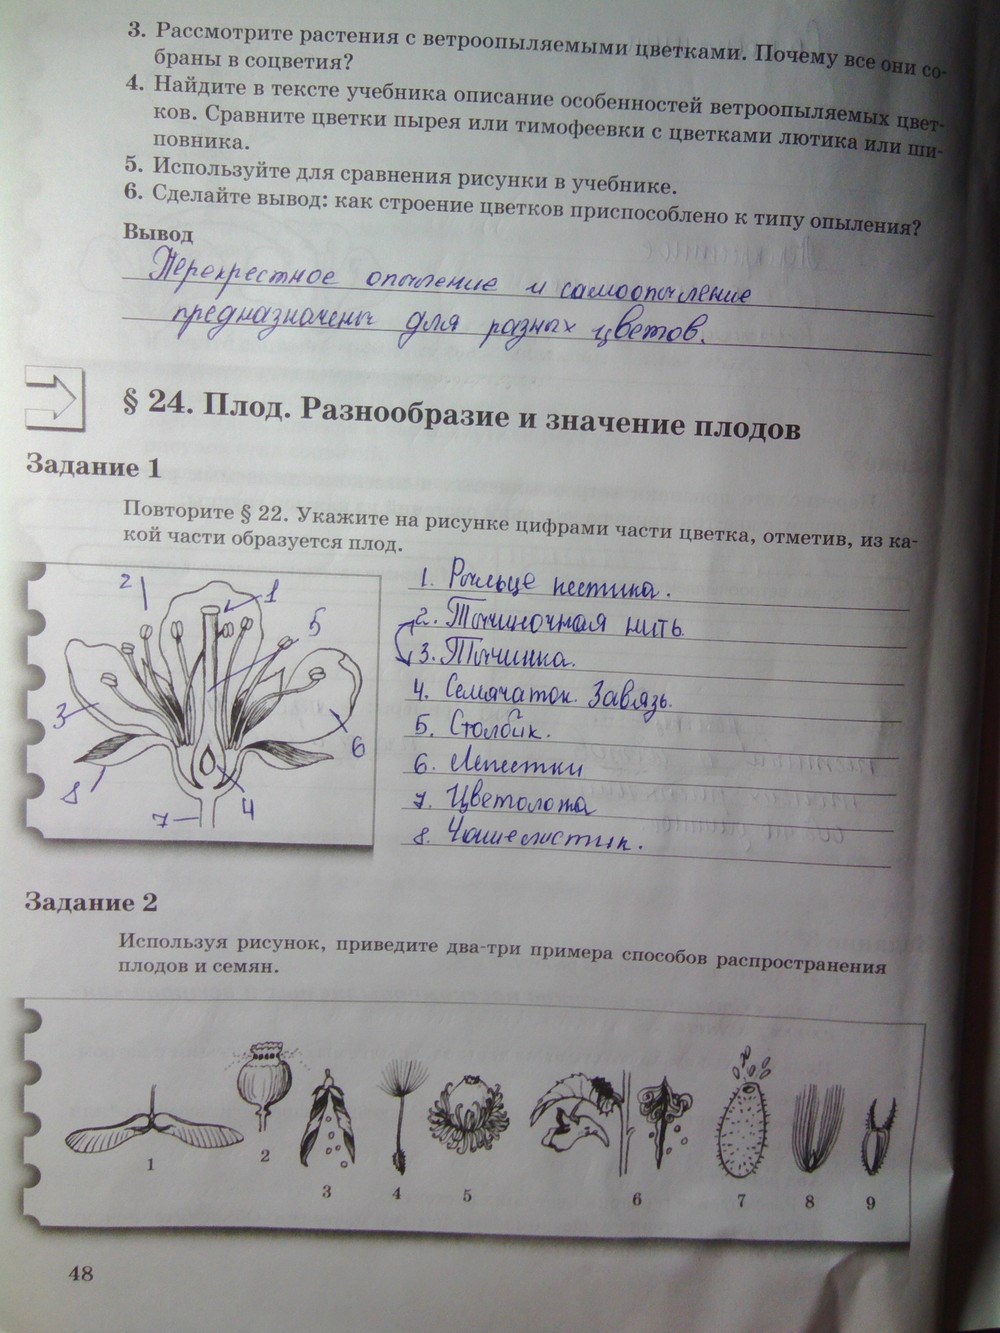 3. Рассмотрите растения с ветроопыляемыми цветками. Почему все они со-
браны в соцветия?
4. Найдите в тексте учебника описание особенностей ветроопыляемых цвет-
ков. Сравните цветки пырея или тимофеевки с цветками лютика или ши-
повника.
5. Используйте для сравнения рисунки в учебнике.
6. Сделайте вывод: как строение цветков приспособлено к типу опыления?
Вывод
Перекрестное опыление и самоопыление
предназначены для разных цветов.
§ 24. Плод. Разнообразие и значение плодов
Задание 1
Повторите § 22. Укажите на рисунке цифрами части цветка, отметив, из ка-
кой части образуется плод.
2 1 5 3 6 8 7 4
1. Рыльце пестика.
2. Тычиночная нить
3. Тычинка.
4. Семячаток. Завязь.
5. Столбик.
6. Лепестки
7. Цветоложа
8. Чашелистик.
Задание 2
Используя рисунок, приведите два-три примера способов распространения
плодов и семян.
1 2 3 4 5 6 7 8 9
48